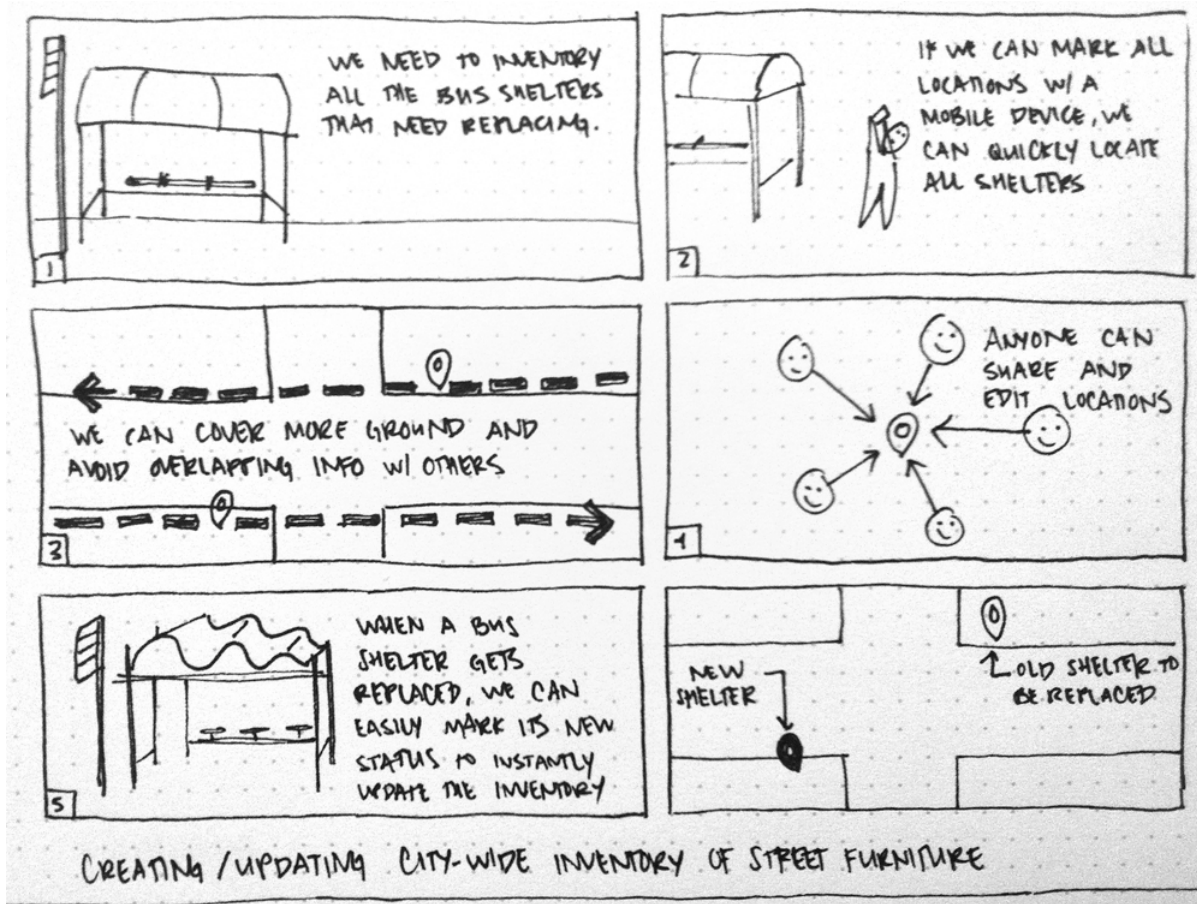 WE NEED TO INVENTORY
ALL THE BUS SHELTERS
THAT NEED REPLACING.
1
IF WE CAN MARK ALL
LOCATIONS W/ A
MOBILE DEVICE, WE
CAN QUICKLY LOCATE
ALL SHELTERS
2
WE CAN COVER MORE GROUND AND
AVOID OVERLAPPING INFO W/ OTHERS
3
ANYONE CAN
SHARE AND
EDIT LOCATIONS
4
WHEN A BUS
SHELTER GETS
REPLACED, WE CAN
EASILY MARK ITS NEW
STATUS TO INSTANTLY
UPDATE THE INVENTORY
5
NEW
SHELTER
OLD SHELTER TO
BE REPLACED
CREATING/UPDATING CITY-WIDE INVENTORY OF STREET FURNITURE